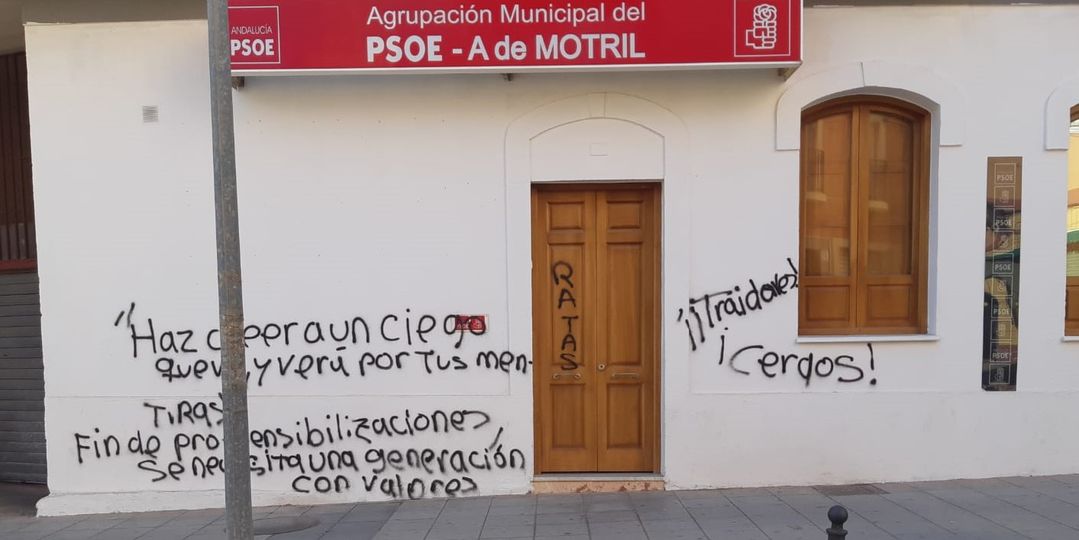 ANDALUCÍA
PSOE
Agrupación Municipal del
PSOE - A de MOTRIL
"Haz creer a un ciego
que ve, y verá por Tus men-
TiRAS!
Fin de
Se necesita una generación
con valores
RATAS
¡¡Traidores!
¡Cerdos!
PSOE
PSOE
PSOE
PSOE
PSOE